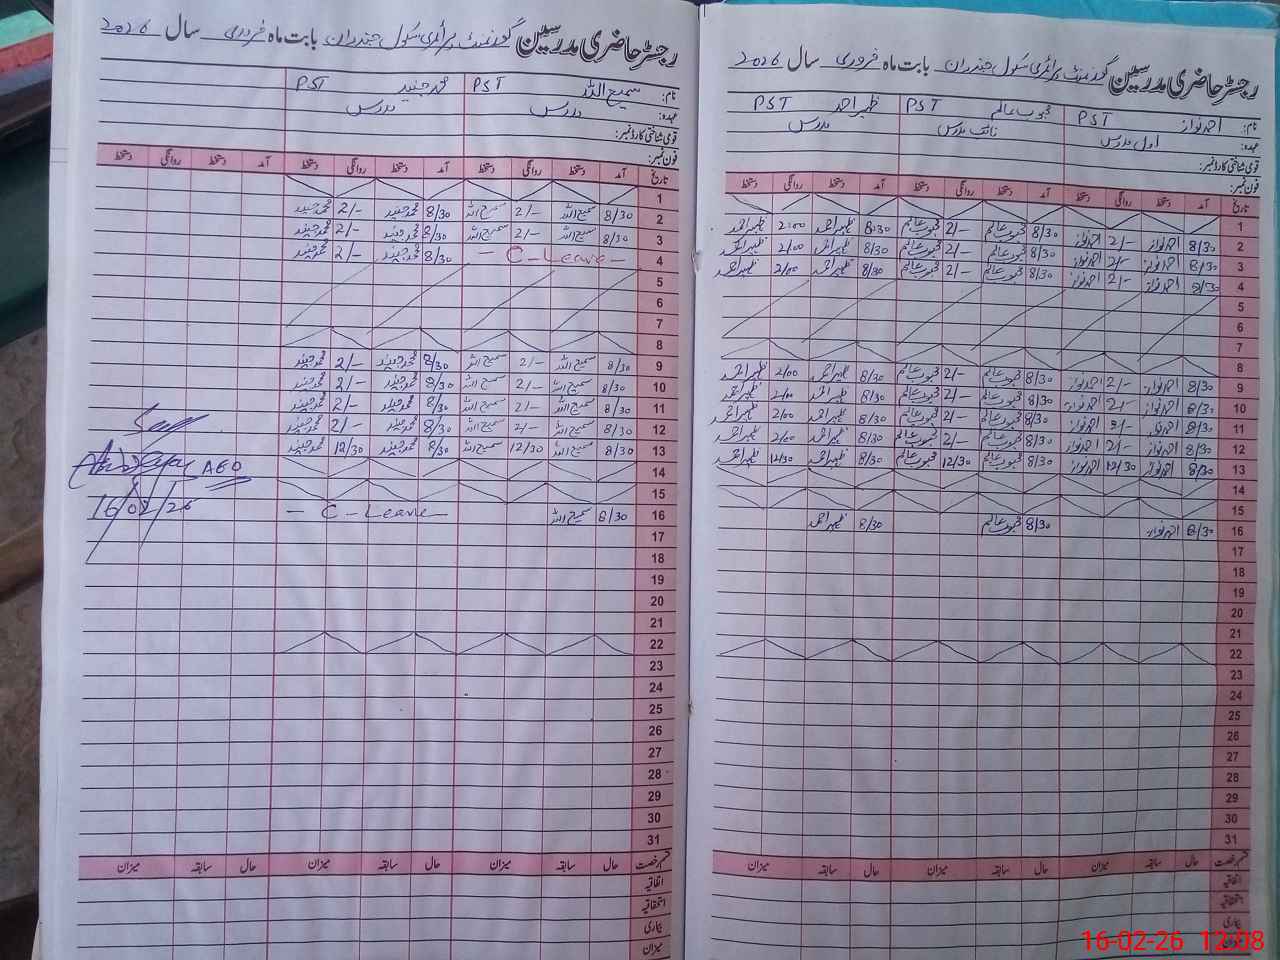 رجسٹر حاضری مدرسین گورنمنٹ پرائمری سکول جندران بابت ماہ فروری سال 2026
نام: احمد نواز PST محبوب عالم PST ظہیر احمد PST
عہدہ: اول مدرس نائب مدرس مدرس
قومی شناختی کارڈ نمبر:
فون نمبر:
تاریخ آمد دستخط روانگی دستخط آمد دستخط روانگی دستخط آمد دستخط روانگی دستخط
1
2 8/30 احمد نواز 2/- احمد نواز 8/30 محبوب عالم 2/- محبوب عالم 8:30 ظہیر احمد 2:00 ظہیر احمد
3 8/30 احمد نواز 2/- احمد نواز 8/30 محبوب عالم 2/- محبوب عالم 8/30 ظہیر احمد 2/00 ظہیر احمد
4 8/30 احمد نواز 2/- احمد نواز 8/30 محبوب عالم 2/- محبوب عالم 8/30 ظہیر احمد 2/00 ظہیر احمد
5
6
7
8
9 8/30 احمد نواز 2/- احمد نواز 8/30 محبوب عالم 2/- محبوب عالم 8/30 ظہیر احمد 2/00 ظہیر احمد
10 8/30 احمد نواز 2/- احمد نواز 8/30 محبوب عالم 2/- محبوب عالم 8/30 ظہیر احمد 2/00 ظہیر احمد
11 8/30 احمد نواز 2/- احمد نواز 8/30 محبوب عالم 2/- محبوب عالم 8/30 ظہیر احمد 2/00 ظہیر احمد
12 8/30 احمد نواز 2/- احمد نواز 8/30 محبوب عالم 2/- محبوب عالم 8/30 ظہیر احمد 2/00 ظہیر احمد
13 8/30 احمد نواز 12/30 احمد نواز 8/30 محبوب عالم 12/30 محبوب عالم 8/30 ظہیر احمد 12/30 ظہیر احمد
14
15
16 8/30 احمد نواز 8/30 محبوب عالم 8/30 ظہیر احمد
17
18
19
20
21
22
23
24
25
26
27
28
29
30
31
قسم رخصت حال سابقہ میزان حال سابقہ میزان حال سابقہ میزان
اتفاقیہ
استحقاقیہ
بیماری
میزان
رجسٹر حاضری مدرسین گورنمنٹ پرائمری سکول جندران بابت ماہ فروری سال 2026
نام: سمیع اللہ PST محمد جنید PST
عہدہ: مدرس مدرس
قومی شناختی کارڈ نمبر:
فون نمبر:
تاریخ آمد دستخط روانگی دستخط آمد دستخط روانگی دستخط آمد دستخط روانگی دستخط
1
2 8/30 سمیع اللہ 2/- سمیع اللہ 8/30 محمد جنید 2/- محمد جنید
3 8/30 سمیع اللہ 2/- سمیع اللہ 8/30 محمد جنید 2/- محمد جنید
4 - C-Leave - 8/30 محمد جنید 2/- محمد جنید
5
6
7
8
9 8/30 سمیع اللہ 2/- سمیع اللہ 8/30 محمد جنید 2/- محمد جنید
10 8/30 سمیع اللہ 2/- سمیع اللہ 8/30 محمد جنید 2/- محمد جنید
11 8/30 سمیع اللہ 2/- سمیع اللہ 8/30 محمد جنید 2/- محمد جنید
12 8/30 سمیع اللہ 2/- سمیع اللہ 8/30 محمد جنید 2/- محمد جنید
13 8/30 سمیع اللہ 12/30 سمیع اللہ 8/30 محمد جنید 12/30 محمد جنید
14
15
16 8/30 سمیع اللہ - C-Leave -
17
18
19
20
21
22
23
24
25
26
27
28
29
30
31
قسم رخصت حال سابقہ میزان حال سابقہ میزان حال سابقہ میزان
اتفاقیہ
استحقاقیہ
بیماری
میزان
AEO
16/02/26
16-02-26 12:08